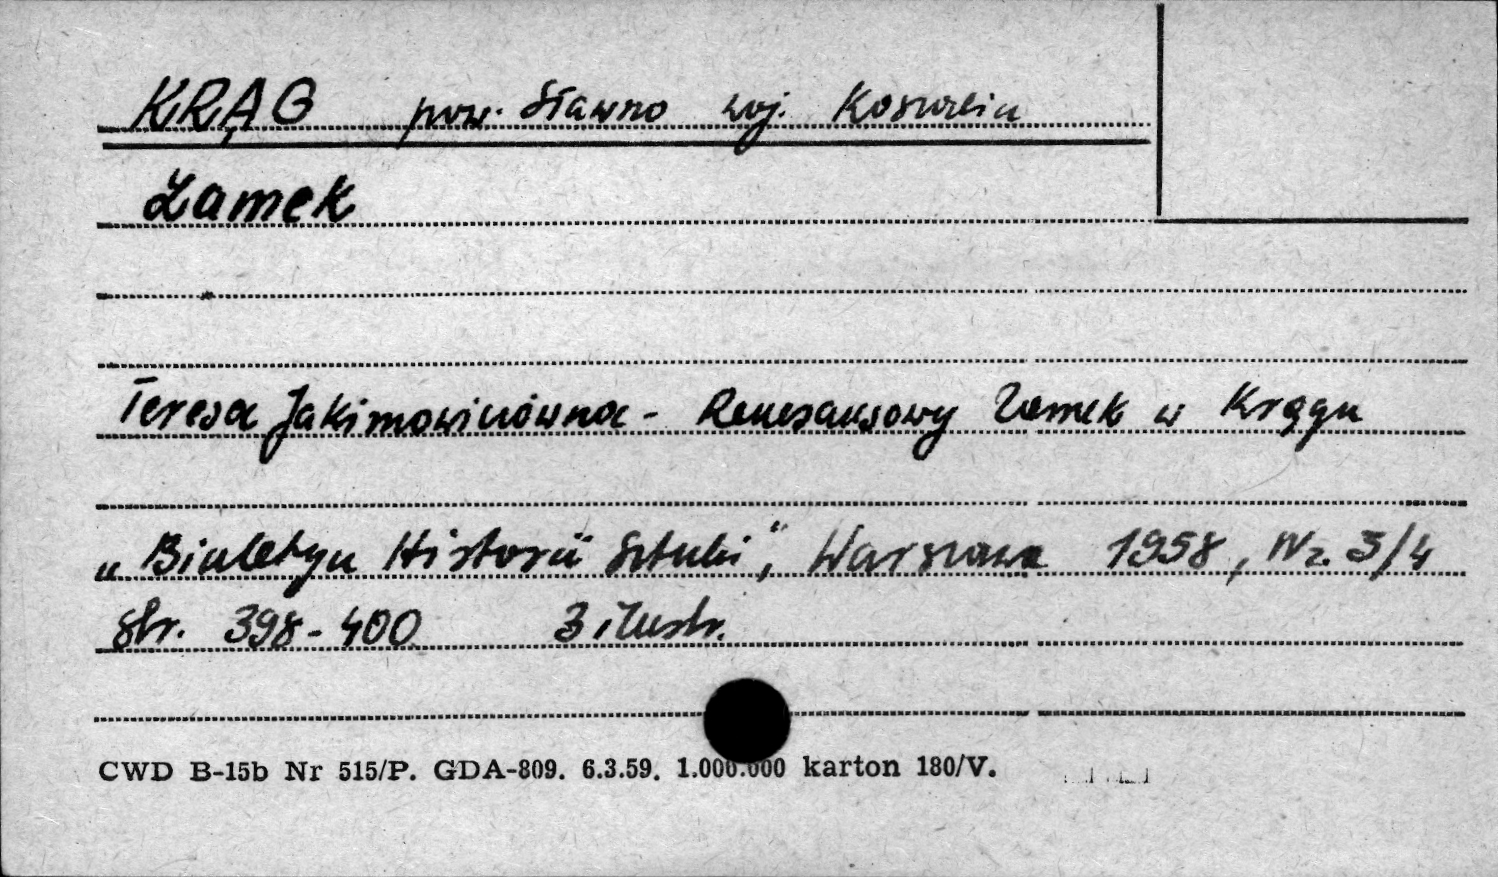 KRĄG pow. Sławno woj. Koszalin
Zamek
Teresa Jakimowiczówna - Renesansowy Zamek w Krągu
„Biuletyn Historii Sztuki”, Warszawa 1958, Nr. 3/4
str. 398-400 3 ilustr.
CWD B-15b Nr 515/P. GDA-809. 6.3.59. 1.000.000 karton 180/V.